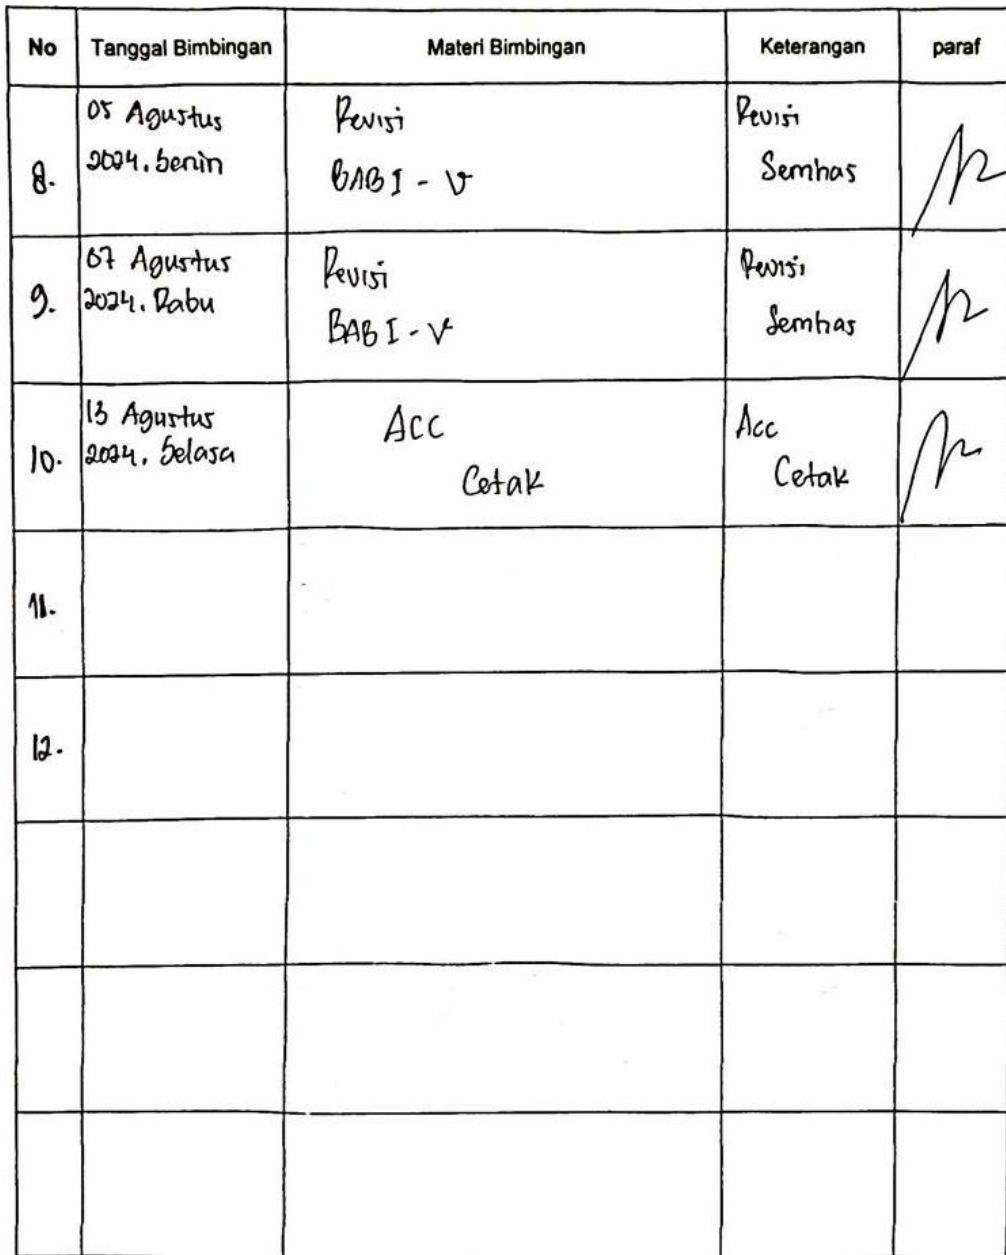 No Tanggal Bimbingan Materi Bimbingan Keterangan paraf
8.
05 Agustus
2024. Senin
Revisi
BAB I - V
Revisi
Semhas
9.
07 Agustus
2024. Rabu
Revisi
BAB I - V
Revisi
Semhas
10.
13 Agustus
2024. Selasa
ACC
Cetak
Acc
Cetak
11.
12.